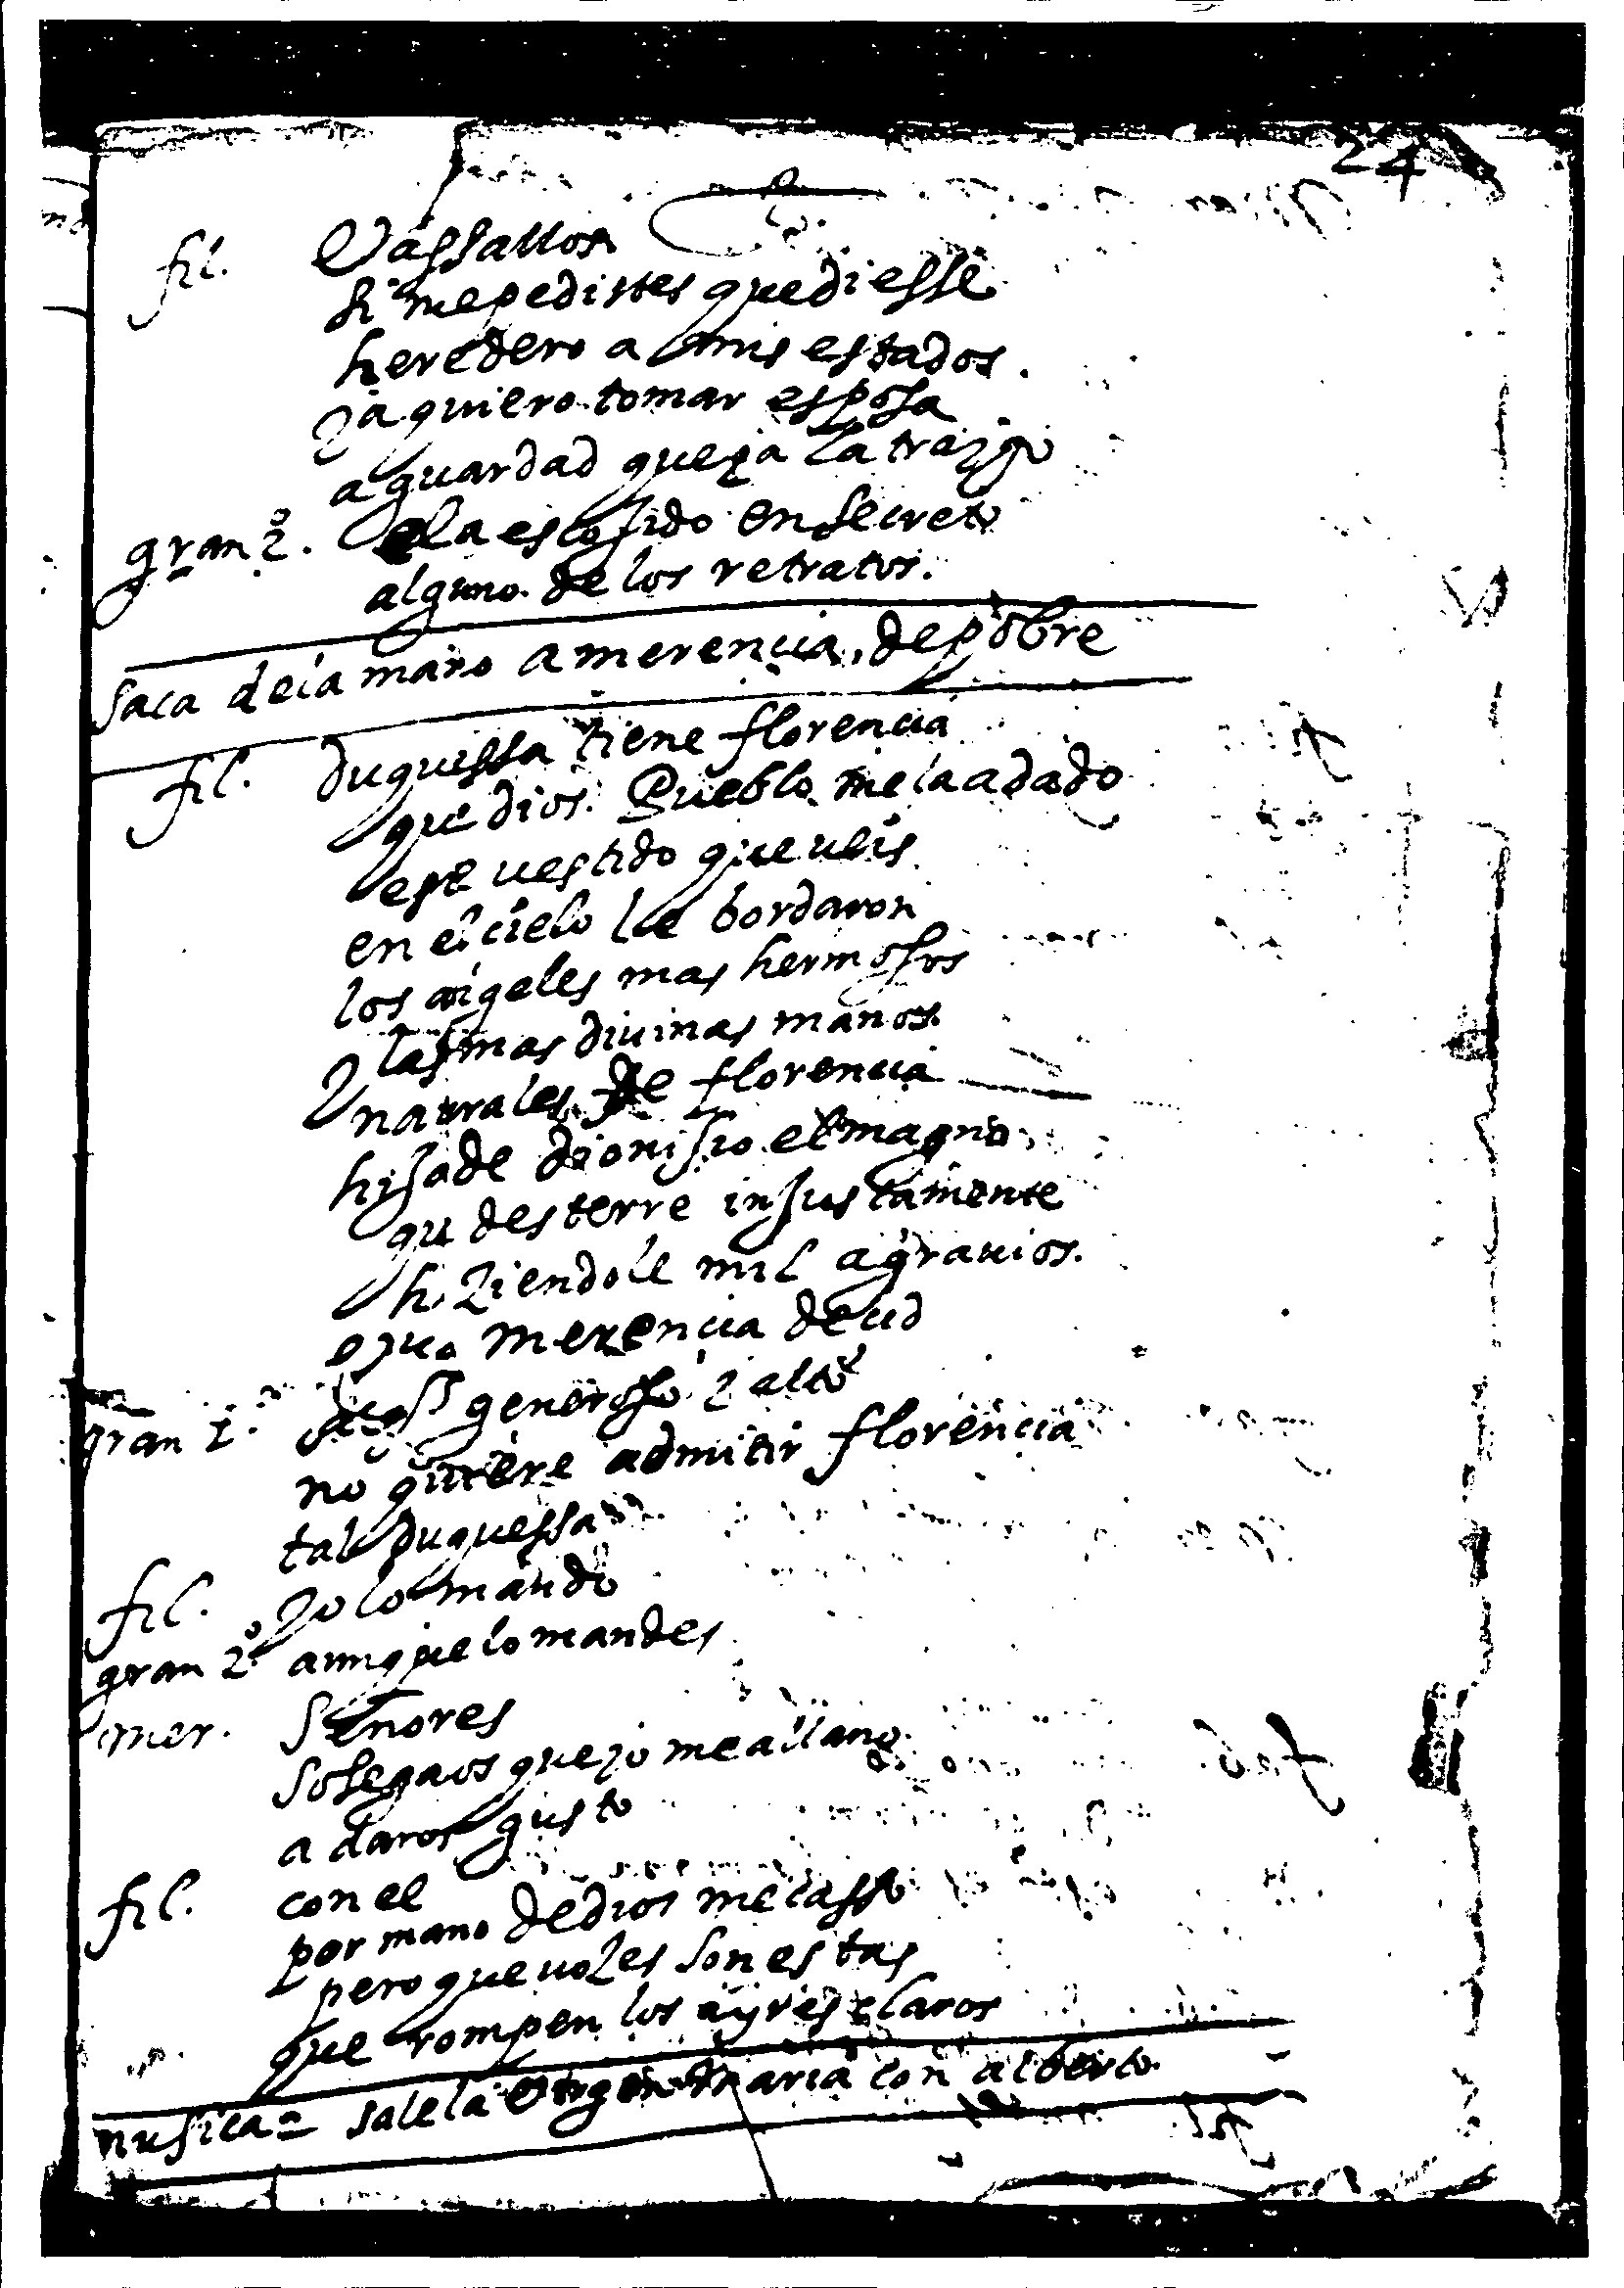 24
fil. Vassallos
si me pedistes que diesse
heredero a mis estados.
ya quiero tomar esposa
aguardad que ya la traygo
gran 2º. a la escojido en secreto
alguno de los retratos.
saca de la mano a merencia, de pobre
fil. duquessa tiene florencia
que dios. Pueblo me la a dado
este vestido que veis
en el cielo le bordaron
los angeles mas hermosos
y las mas divinas manos.
naturales de florencia
hija de dionisio el magno
qu desterre injustamente
haziendole mil agravios.
merencia
gran 1. generoso y alto
no quiere admitir florencia
tal duquessa
fil. yo lo mando
gran 2º. aunque lo mandes
mer. Señores
sosegaos que yo me allano
a daros gusto
fil. con el
por mano de dios me casso
pero que vozes son estas
que rompen los ayres claros
musica = sale la Virgen maria con alberto.